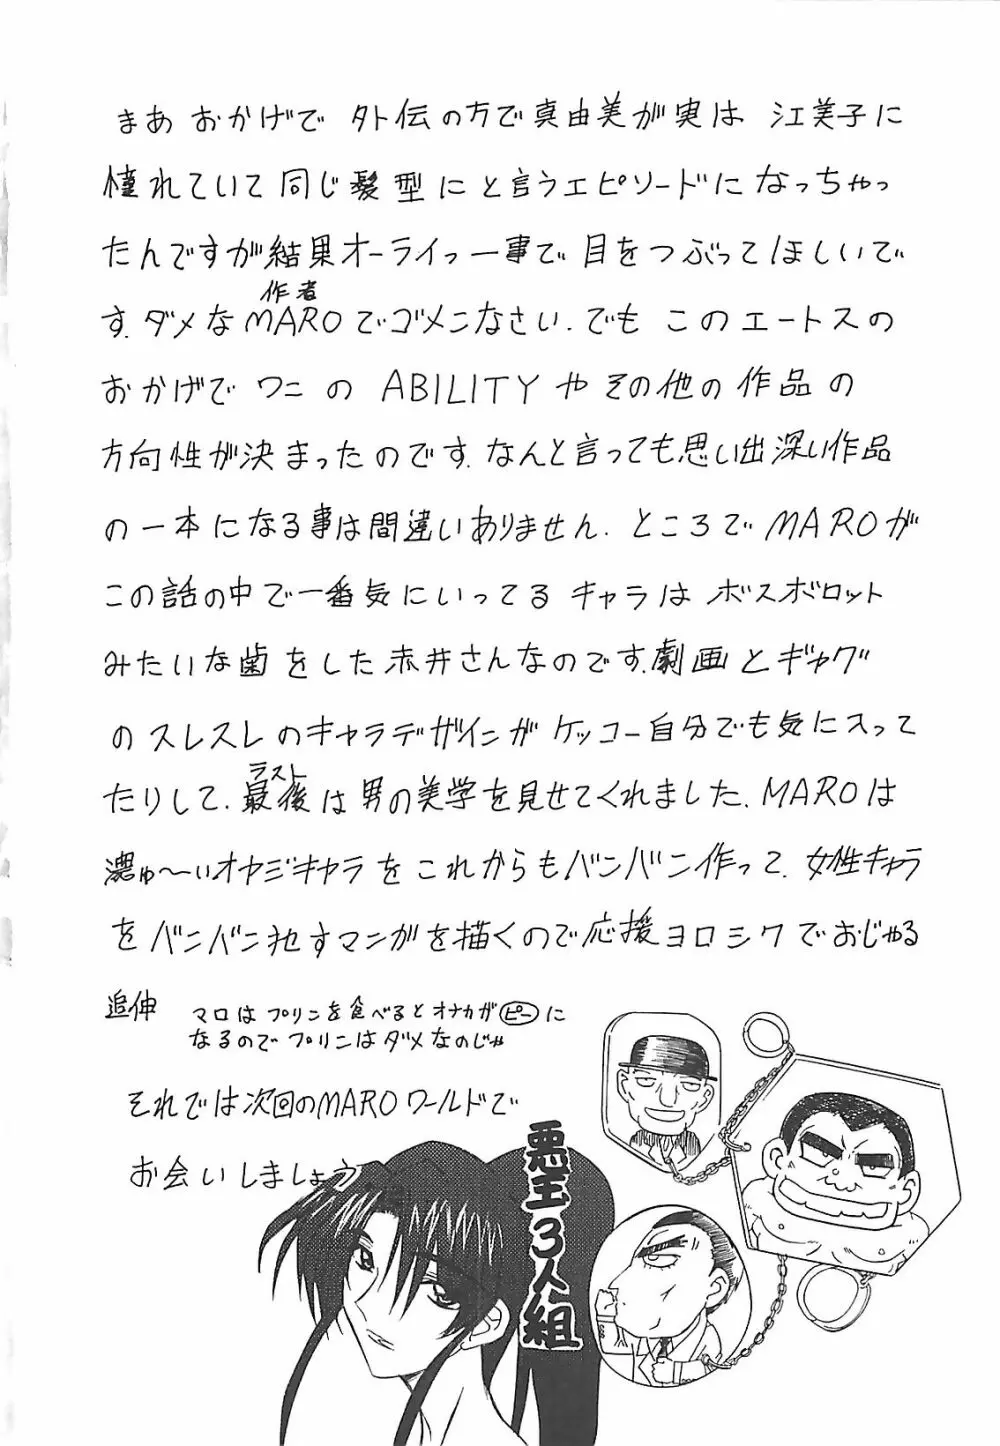 まあ おかげで 外伝の方で真由美が実は 江美子に
憧れていて同じ髪型にと言うエピソードになっちゃっ
たんですが結果オーライっー事で目をつぶってほしいで
す.ダメなMAROでゴメンなさい.でも このエートスの
作者
おかげで ワニの ABILITYやその他の作品の
方向性が決まったのです.なんと言っても思い出深い作品
の一本になる事は間違いありません.ところでMAROが
この話の中で一番気にいってる キャラは ボスボロット
みたいな歯をした赤井さんなのです.劇画とギャグ
のスレスレのキャラデザインがケッコー自分でも気に入って
たりして.最後は男の美学を見せてくれました.MAROは
ラスト
濃ゅ〜いオヤジキャラをこれからもバンバン作って.女性キャラ
をバンバン犯すマンガを描くので応援ヨロシクでおじゃる
追伸 マロはプリンを食べるとオナカがピーに
なるのでプリンはダメなのじゃ
それでは次回のMAROワールドで
お会いしましょう
悪玉3人組